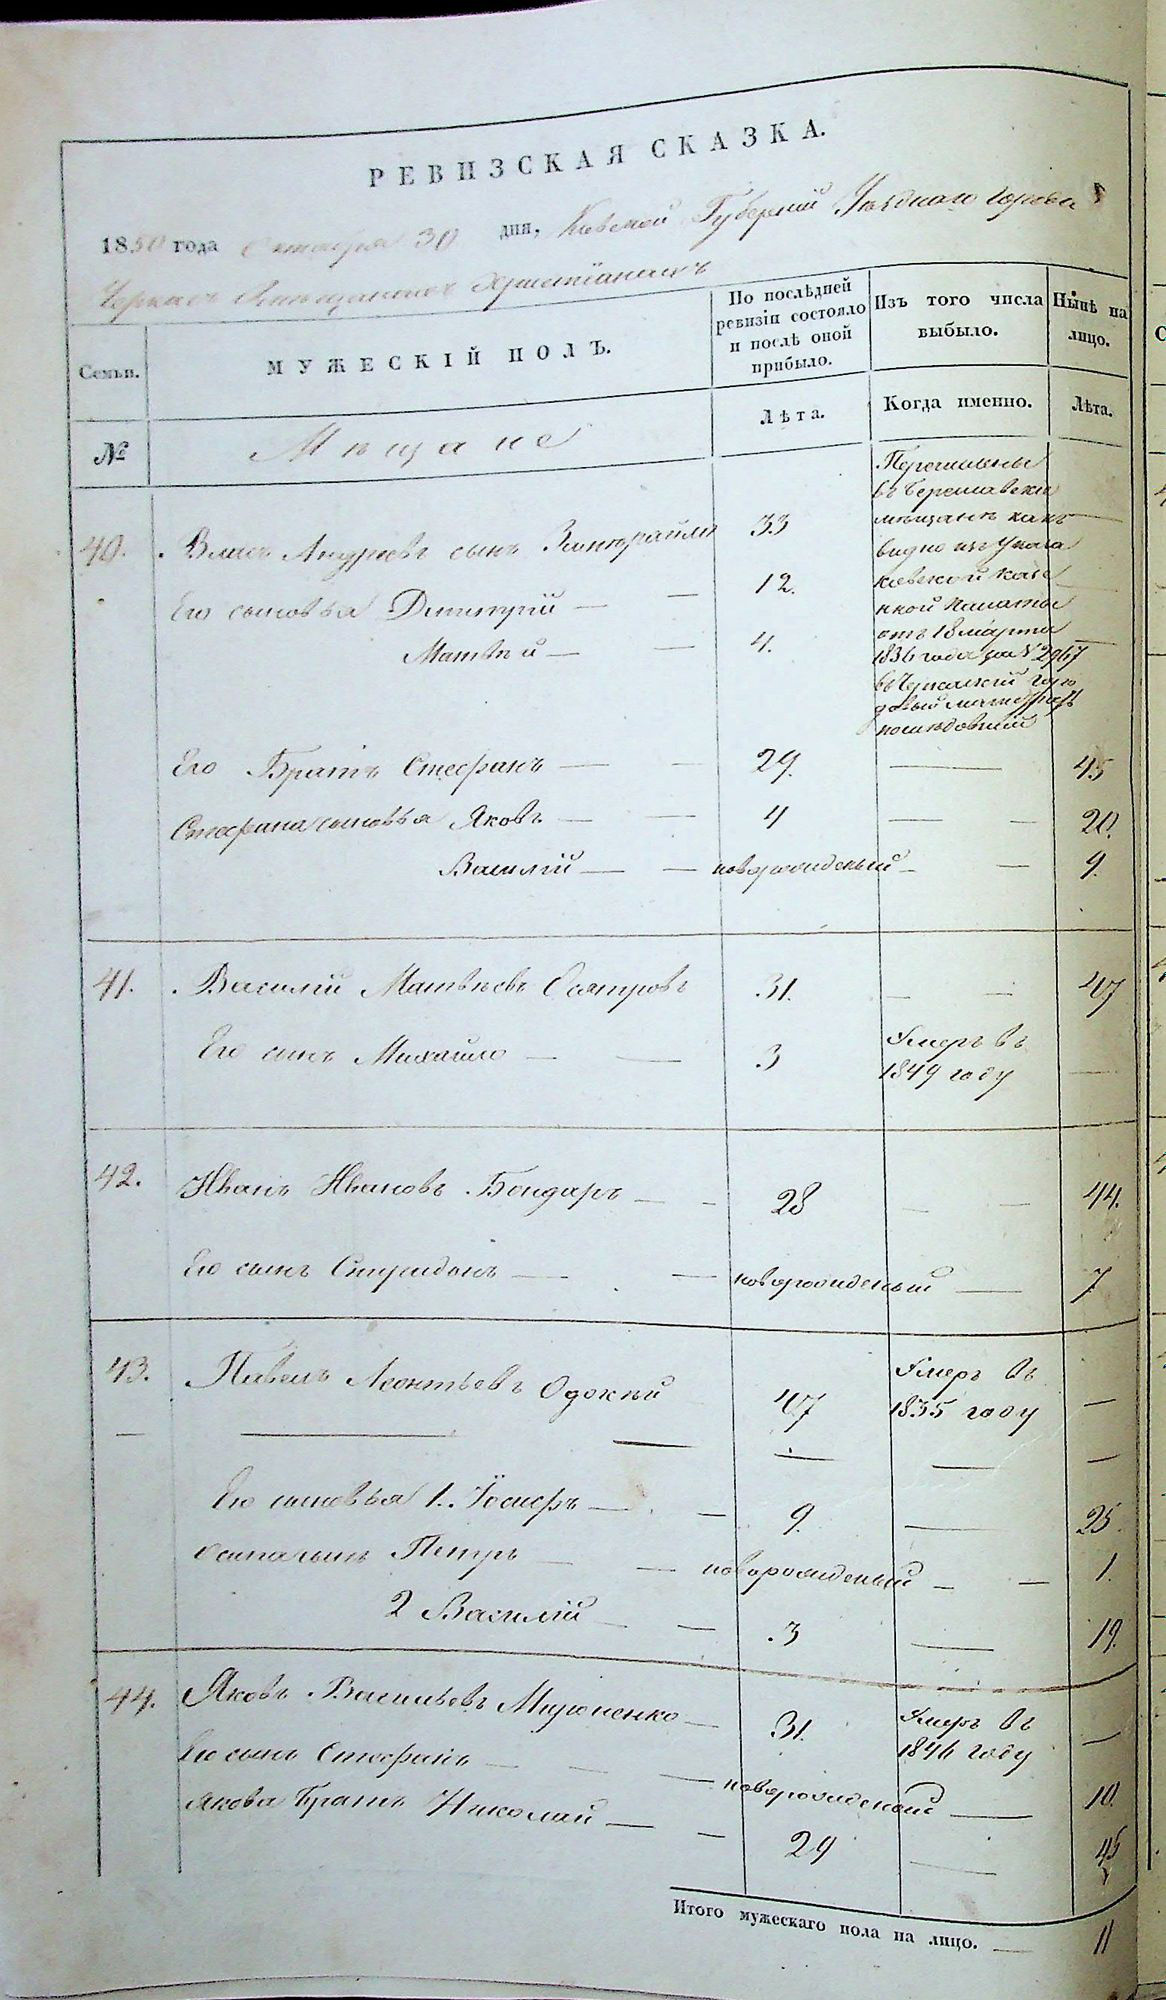 РЕВИЗСКАЯ СКАЗКА.
1850 года Октября 30 дня, Киевской Губернии Уѣзднаго города
Черкасъ Христіанахъ
Семьи.
МУЖЕСКІЙ ПОЛЪ.
По послѣдней ревизіи состояло и послѣ оной прибыло.
Изъ того числа выбыло.
Нынѣ на лицо.
№
Мѣщане
Лѣта.
Когда именно.
Лѣта.
Перечислены
въ
мѣщане какъ
видно изъ Указа
Киевской Казе
нной Палаты
отъ 18 марта
1836 года за № 2967
въ Черкаский горо
довый магистратъ
послѣдовавшій
40. Власъ Андреевъ сынъ 33
Его сыновья Димитрій — — 12.
Матвѣй — — 4.
Его Братъ Стефанъ — — 29. — 45
Стефана сыновья Яковъ — — 4 — — 20.
Василій — — новорожденый — — 9.
41. Василій Матвѣевъ Осятровъ 31. — — 47
Его сынъ Михайло — — 3 Умеръ въ 1849 году —
42. Иванъ Ивановъ Бондаръ — — 28 — — 44.
Его сынъ Спиридонъ — — новорожденый — 7.
43. Павелъ Леонтьевъ 47 Умеръ въ 1835 году —
— — — — — —
Его сыновья 1. Іосифъ — — 9. — 25.
Осипа сынъ Петръ — — новорожденый — — 1.
2 Василій — — 3 — 19.
44. Яковъ Васильевъ Мироненко — 31. Умеръ въ 1846 году —
Его сынъ Стефанъ — — — новорожденый — 10.
Якова Братъ Николай — — 29 — 45
Итого мужескаго пола на лицо. — 11